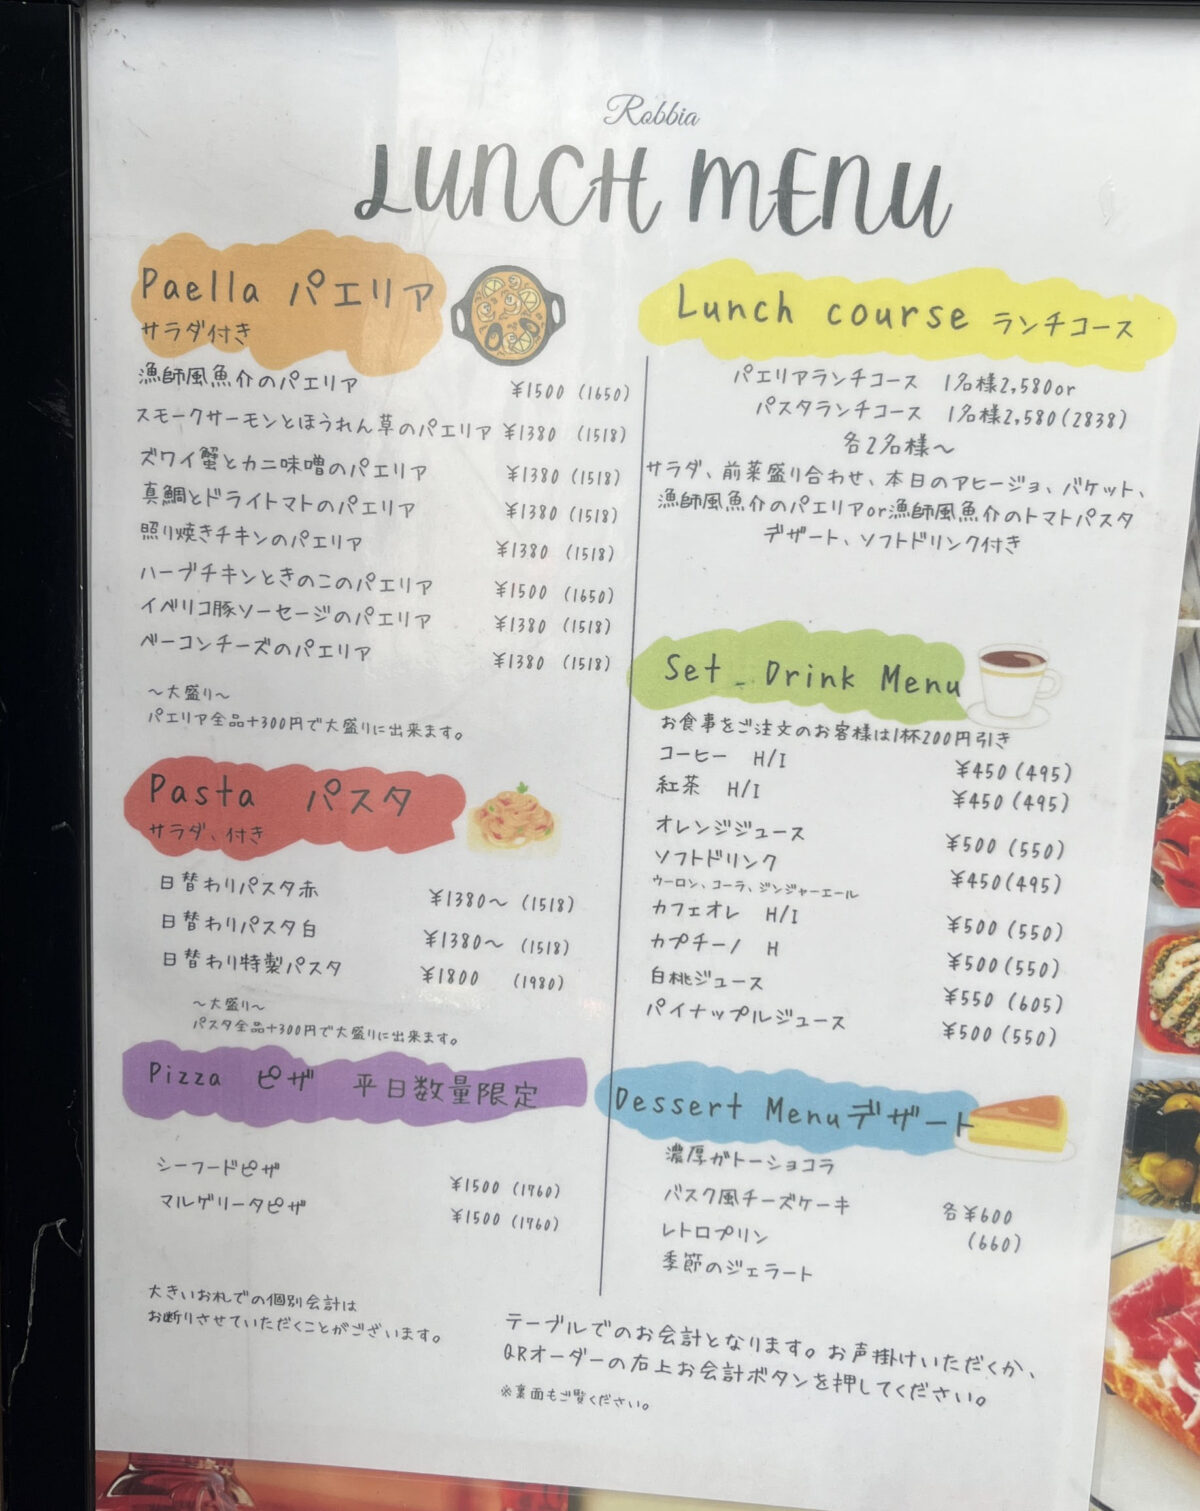 Robbia
LUNCH MENU
Paella パエリア
サラダ付き
漁師風魚介のパエリア ¥1500 (1650)
スモークサーモンとほうれん草のパエリア ¥1380 (1518)
ズワイ蟹とカニ味噌のパエリア ¥1380 (1518)
真鯛とドライトマトのパエリア ¥1380 (1518)
照り焼きチキンのパエリア ¥1380 (1518)
ハーブチキンときのこのパエリア ¥1500 (1650)
イベリコ豚ソーセージのパエリア ¥1380 (1518)
ベーコンチーズのパエリア ¥1380 (1518)
〜大盛り〜
パエリア全品+300円で大盛りに出来ます。
Pasta パスタ
サラダ、付き
日替わりパスタ赤 ¥1380〜 (1518)
日替わりパスタ白 ¥1380〜 (1518)
日替わり特製パスタ ¥1800 (1980)
〜大盛り〜
パスタ全品+300円で大盛りに出来ます。
Pizza ピザ 平日数量限定
シーフードピザ ¥1500 (1760)
マルゲリータピザ ¥1500 (1760)
大きいお札での個別会計は
お断りさせていただくことがございます。
Lunch course ランチコース
パエリアランチコース 1名様2,580or
パスタランチコース 1名様2,580(2838)
各2名様〜
サラダ、前菜盛り合わせ、本日のアヒージョ、バケット、
漁師風魚介のパエリアor漁師風魚介のトマトパスタ
デザート、ソフトドリンク付き
Set_Drink Menu
お食事をご注文のお客様は1杯200円引き
コーヒー H/I ¥450(495)
紅茶 H/I ¥450(495)
オレンジジュース ¥500(550)
ソフトドリンク ¥450(495)
ウーロン、コーラ、ジンジャーエール
カフェオレ H/I ¥500(550)
カプチーノ H ¥500(550)
白桃ジュース ¥550 (605)
パイナップルジュース ¥500(550)
Dessert Menuデザート
濃厚ガトーショコラ
バスク風チーズケーキ 各¥600
レトロプリン (660)
季節のジェラート
テーブルでのお会計となります。お声掛けいただくか、
QRオーダーの右上お会計ボタンを押してください。
※裏面もご覧ください。